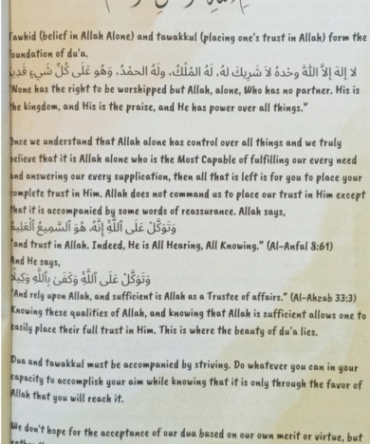 Tawhid (belief in Allah Alone) and tawakkul (placing one's trust in Allah) form the
foundation of du'a.
لا إلهَ إلاَّ اللَّهَ وحدهُ لاَ شَرِيكَ لهُ، لَهُ المُلْكُ، ولَهُ الحمْدُ، وَهُو عَلَى كُلِّ شَيءٍ قَدِيرٌ
"None has the right to be worshipped but Allah, alone, Who has no partner. His is
the kingdom, and His is the praise, and He has power over all things."
Once we understand that Allah alone has control over all things and we truly
believe that it is Allah alone who is the Most Capable of fulfilling our every need
and answering our every supplication, then all that is left is for you to place your
complete trust in Him. Allah does not command us to place our trust in Him except
that it is accompanied by some words of reassurance. Allah says,
وَتَوَكَّلْ عَلَى ٱللَّهِ إِنَّهُۥ هُوَ ٱلسَّمِيعُ ٱلْعَلِيمُ
"and trust in Allah. Indeed, He is All Hearing, All Knowing." (Al-Anfal 8:61)
And He says,
وَتَوَكَّلْ عَلَى ٱللَّهِ وَكَفَىٰ بِٱللَّهِ وَكِيلًا
"And rely upon Allah, and sufficient is Allah as a Trustee of affairs." (Al-Ahzab 33:3)
Knowing these qualities of Allah, and knowing that Allah is sufficient allows one to
easily place their full trust in Him. This is where the beauty of du'a lies.
Dua and tawakkul must be accompanied by striving. Do whatever you can in your
capacity to accomplish your aim while knowing that it is only through the favor of
Allah that you will reach it.
We don't hope for the acceptance of our dua based on our own merit or virtue, but